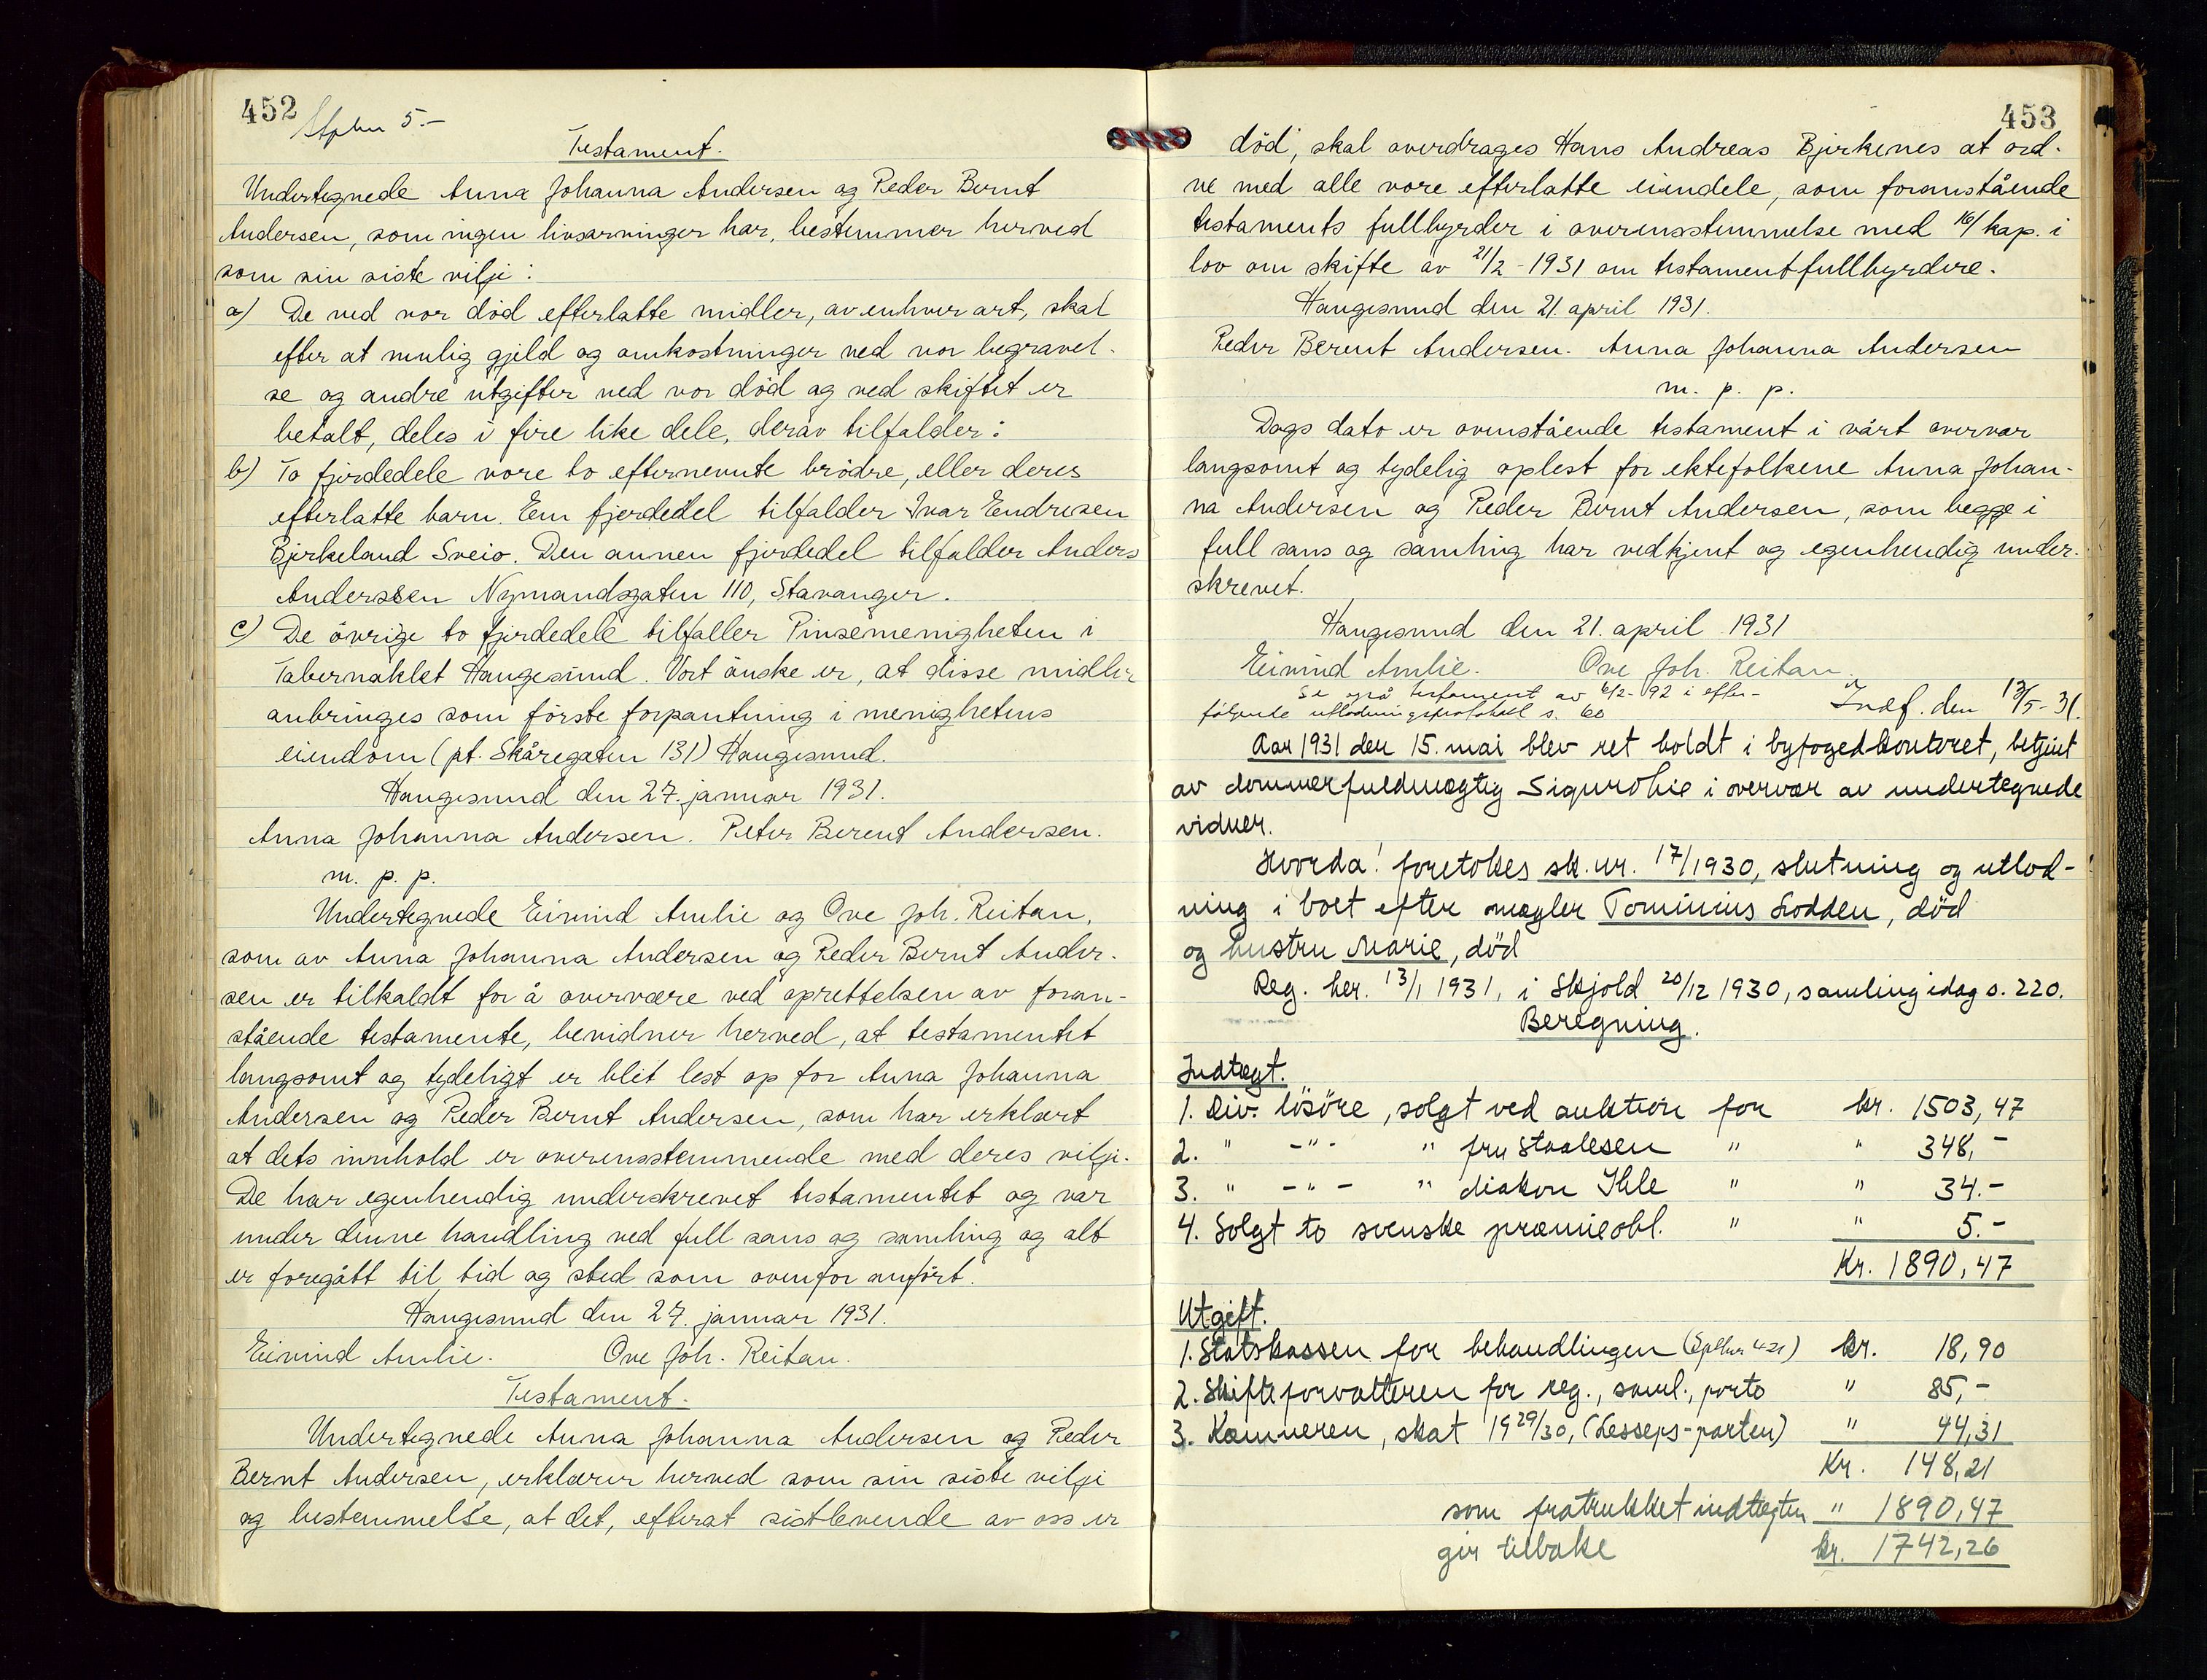 452
5.-
Testament.
Undertegnede Anna Johanna Andersen og Peder Bernt
Andersen, som ingen livsarvinger har, bestemmer herved
som sin siste vilje:
a) De ved vor død efterlatte midler, av enhver art, skal
efter at mulig gjeld og omkostninger ved vor begravel-
se og andre utgifter ved vor død og ved skiftet er
betalt, deles i fire like dele, derav tilfalder:
b) To fjerdedele vore to efternevnte brødre, eller deres
efterlatte barn. Een fjerdedel tilfalder Ivar Eendresen
Bjerkeland Sveio. Den annen fjerdedel tilfalder Anders
Anderssen Nymandsgaten 110, Stavanger.
c) De øvrige to fjerdedele tilfaller Pinsemenigheten i
Tabernaklet Haugesund. Vort ønske er, at disse midler
anbringes som første forpantning i menighetens
eiendom (pt. Skåregaten 131) Haugesund.
Haugesund den 27. januar 1931.
Anna Johanna Andersen. Peter Berent Andersen.
m. p. p.
Undertegnede Eivind Amlie og Ove Joh. Reitan,
som av Anna Johanna Andersen og Peder Bernt Ander-
sen er tilkaldt for å overvære ved oprettelsen av foran-
stående testamente, bevidner herved, at testamentet
langsomt og tydeligt er blit lest op for Anna Johanna
Andersen og Peder Bernt Andersen, som har erklært
at dets innhold er overensstemmende med deres vilje.
De har egenhendig underskrevet testamentet og var
under denne handling ved full sans og samling og alt
er foregått til tid og sted som ovenfor anført.
Haugesund den 27. januar 1931.
Eivind Amlie. Ove Joh. Reitan.
Testament.
Undertegnede Anna Johanna Andersen og Peder
Bernt Andersen, erklærer herved som sin siste vilje
og bestemmelse, at det, efterat sistlevende av oss er
453
død, skal overdrages Hans Andreas Bjerkenes at ord-
ne med alle vore efterlatte eiendele, som foranstående
testaments fullbyrder i overensstemmelse med 16/ kap. i
lov om skifte av 21/2-1931 om testamentfullbyrdere.
Haugesund den 21. april 1931.
Peder Berent Andersen. Anna Johanna Andersen
m. p. p.
Dags dato er ovenstående testament i vårt overvær
langsomt og tydelig oplest for ektefolkene Anna Johan-
na Andersen og Peder Bernt Andersen, som begge i
full sans og samling har vedkjent og egenhendig under-
skrevet.
Haugesund den 21. april 1931
Eivind Amlie. Ove Joh. Reitan.
Se også testament av 6/2-92 i efter-
følgende utlodningsprotokoll s. 60
Innf. den 13/5-31.
Aar 1931 den 15. mai blev ret holdt i byfogedkontoret, betjent
av dommerfuldmægtig Sigurd Lie i overvær av undertegnede
vidner.
Hvorda! foretokes sk. nr. 17/1930, slutning og utlod-
ning i boet efter mægler Tominius Lodden, død
og hustru Marie, død
Reg. her. 13/1 1931, i Skjold 20/12 1930, samling idag s. 220.
Beregning.
Indtægt.
1. Div. løsøre, solgt ved auktion for kr. 1503,47
2. " -"- " fru Staalesen " " 348,-
3. " -"- " diakon Ihle " " 34.-
4. Solgt to svenske præmieobl. " " 5.-
Kr. 1890,47
Utgift.
1. Statskassen for behandlingen kr. 18,90
2. Skifteforvalteren for reg., saml., porto " 85,-
3. Kæmneren, skat 1929/30, (Lesseps-parten) " 44,31
Kr. 148,21
som fratrukket indtægten " 1890,47
gir tilbake kr. 1742,26